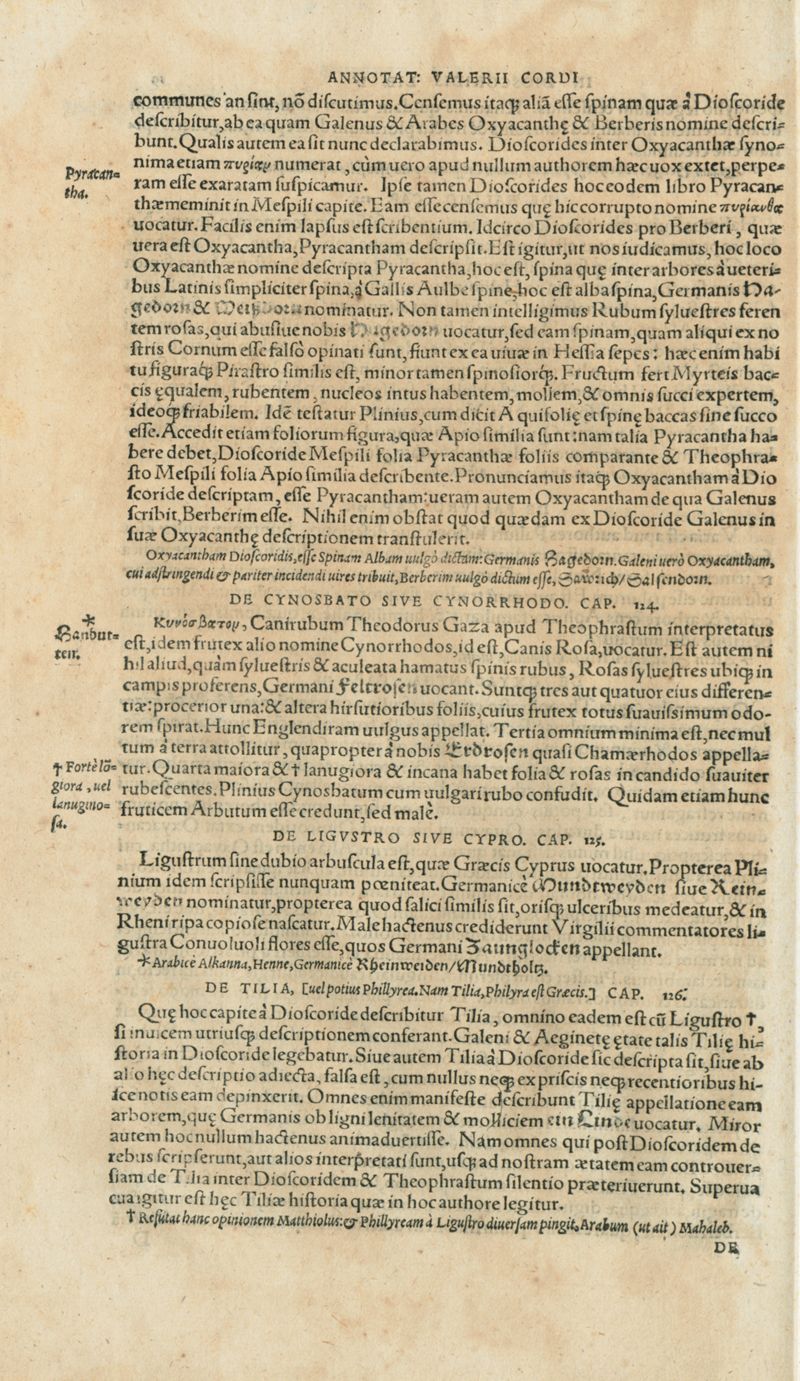 ANNOTAT: VALERII CORDI
communes an sint, nō discutimus. Censemus itaq; aliā esse spinam quæ à Dioscoride
describitur, ab ea quam Galenus & Arabes Oxyacanthę & Berberis nomine descri-
bunt. Qualis autem ea sit nunc declarabimus. Dioscorides inter Oxyacanthæ syno-
nima etiam πυρίαν numerat, cùm uero apud nullum authorem hæc uox extet, perpe-
Pyracan-
tha.
ram esse exaratam suspicamur. Ipse tamen Dioscorides hoc eodem libro Pyracan-
thæ meminit in Mespili capite. Eam esse censemus quę hic corrupto nomine πυρίανθα
uocatur. Facilis enim lapsus est scribentium. Idcirco Dioscorides pro Berberi, quæ
uera est Oxyacantha, Pyracantham descripsit. Est igitur, ut nos iudicamus, hoc loco
Oxyacanthæ nomine descripta Pyracantha, hoc est, spina quę inter arbores à ueteri-
bus Latinis simpliciter spina, à Gallis Aulbespine, hoc est alba spina, Germanis Ha-
gedorn & Weißdorn nominatur. Non tamen intelligimus Rubum syluestres feren
tem rosas, qui abusiue nobis Hagedorn uocatur, sed eam spinam, quam aliqui ex no
stris Cornum esse falsò opinati sunt, fiunt ex ea uiuæ in Hessia sepes: hæc enim habi
tu figuraq; Pirastro similis est, minor tamen spinosiorq;. Fructum fert Myrteis bac-
cis ęqualem, rubentem, nucleos intus habentem, mollem, & omnis succi expertem,
ideoq; friabilem. Idē testatur Plinius, cum dicit Aquifolię et spinę baccas sine succo
esse. Accedit etiam foliorum figura, quæ Apio similia sunt: nam talia Pyracantha ha-
bere debet, Dioscoride Mespili folia Pyracanthæ foliis comparante & Theophra-
sto Mespili folia Apio similia describente. Pronunciamus itaq; Oxyacantham à Dio
scoride descriptam, esse Pyracantham: ueram autem Oxyacantham de qua Galenus
scribit, Berberim esse. Nihil enim obstat quod quædam ex Dioscoride Galenus in
suæ Oxyacanthę descriptionem transtulerit.
Oxyacantham Dioscoridis, esse Spinam Albam uulgò dictam: Germanis Hagedorn. Galeni uerò Oxyacantham,
cui adstringendi & pariter incidendi uires tribuit, Berberim uulgò dictum esse, Saurich/Salsendorn.
DE CYNOSBATO SIVE CYNORRHODO. CAP. 124.
*
Hanbut-
ten.
Κυνόσβατον, Canirubum Theodorus Gaza apud Theophrastum interpretatus
est, idem frutex alio nomine Cynorrhodos, id est, Canis Rosa, uocatur. Est autem ni
hil aliud, quàm syluestris & aculeata hamatus spinis rubus, Rosas syluestres ubiq; in
campis proferens, Germani Feltrosen uocant. Suntq; tres aut quatuor eius differen-
tiæ: procerior una: & altera hirsutioribus foliis, cuius frutex totus suauissimum odo-
rem spirat. Hunc Englendiram uulgus appellat. Tertia omnium minima est, nec mul
tum à terra attollitur, quapropter à nobis Erdrosen quasi Chamærhodos appella-
† Fortè lō=
giora, uel
lanugino=
sa.
tur. Quarta maiora & † lanugiora & incana habet folia & rosas in candido suauiter
rubescentes. Plinius Cynosbatum cum uulgari rubo confudit. Quidam etiam hunc
fruticem Arbutum esse credunt, sed malè.
DE LIGVSTRO SIVE CYPRO. CAP. 125.
Ligustrum sine dubio arbuscula est, quæ Græcis Cyprus uocatur. Propterea Pli-
nium idem scripsisse nunquam pœniteat. Germanicè Mundtweyden siue Rein-
weyden nominatur, propterea quod salici similis sit, orisq; ulceribus medeatur, & in
Rheni ripa copiose nascatur. Male hactenus crediderunt Virgilii commentatores li-
gustra Conuoluoli flores esse, quos Germani Zaunglocken appellant.
* Arabicè Alkanna, Henne, Germanicè Rheinweiden/Mundtholtz.
DE TILIA, [uel potius Phillyrea. Nam Tilia, Philyra est Græcis.] CAP. 126.
Quę hoc capite à Dioscoride describitur Tilia, omnino eadem est cū Ligustro †,
si inuicem utriusq; descriptionem conferant. Galeni & Aeginetę ętate talis Tilię hi-
storia in Dioscoride legebatur. Siue autem Tilia à Dioscoride sic descripta sit, siue ab
alio hęc descriptio adiecta, falsa est, cum nullus neq; ex priscis neq; recentioribus hi-
sce notis eam depinxerit. Omnes enim manifeste describunt Tilię appellatione eam
arborem, quę Germanis ob ligni lenitatem & molliciem ein Linde uocatur. Miror
autem hoc nullum hactenus animaduertisse. Nam omnes qui post Dioscoridem de
rebus scripserunt, aut alios interpretati sunt, usq; ad nostram ætatem eam controuer-
siam de Tilia inter Dioscoridem & Theophrastum silentio præteriuerunt. Superua
cua igitur est hęc Tiliæ historia quæ in hoc authore legitur.
† Refutat hanc opinionem Matthiolus: & Phillyream à Ligustro diuersam pingit, Arabum (ut ait) Mahaleb.
DE